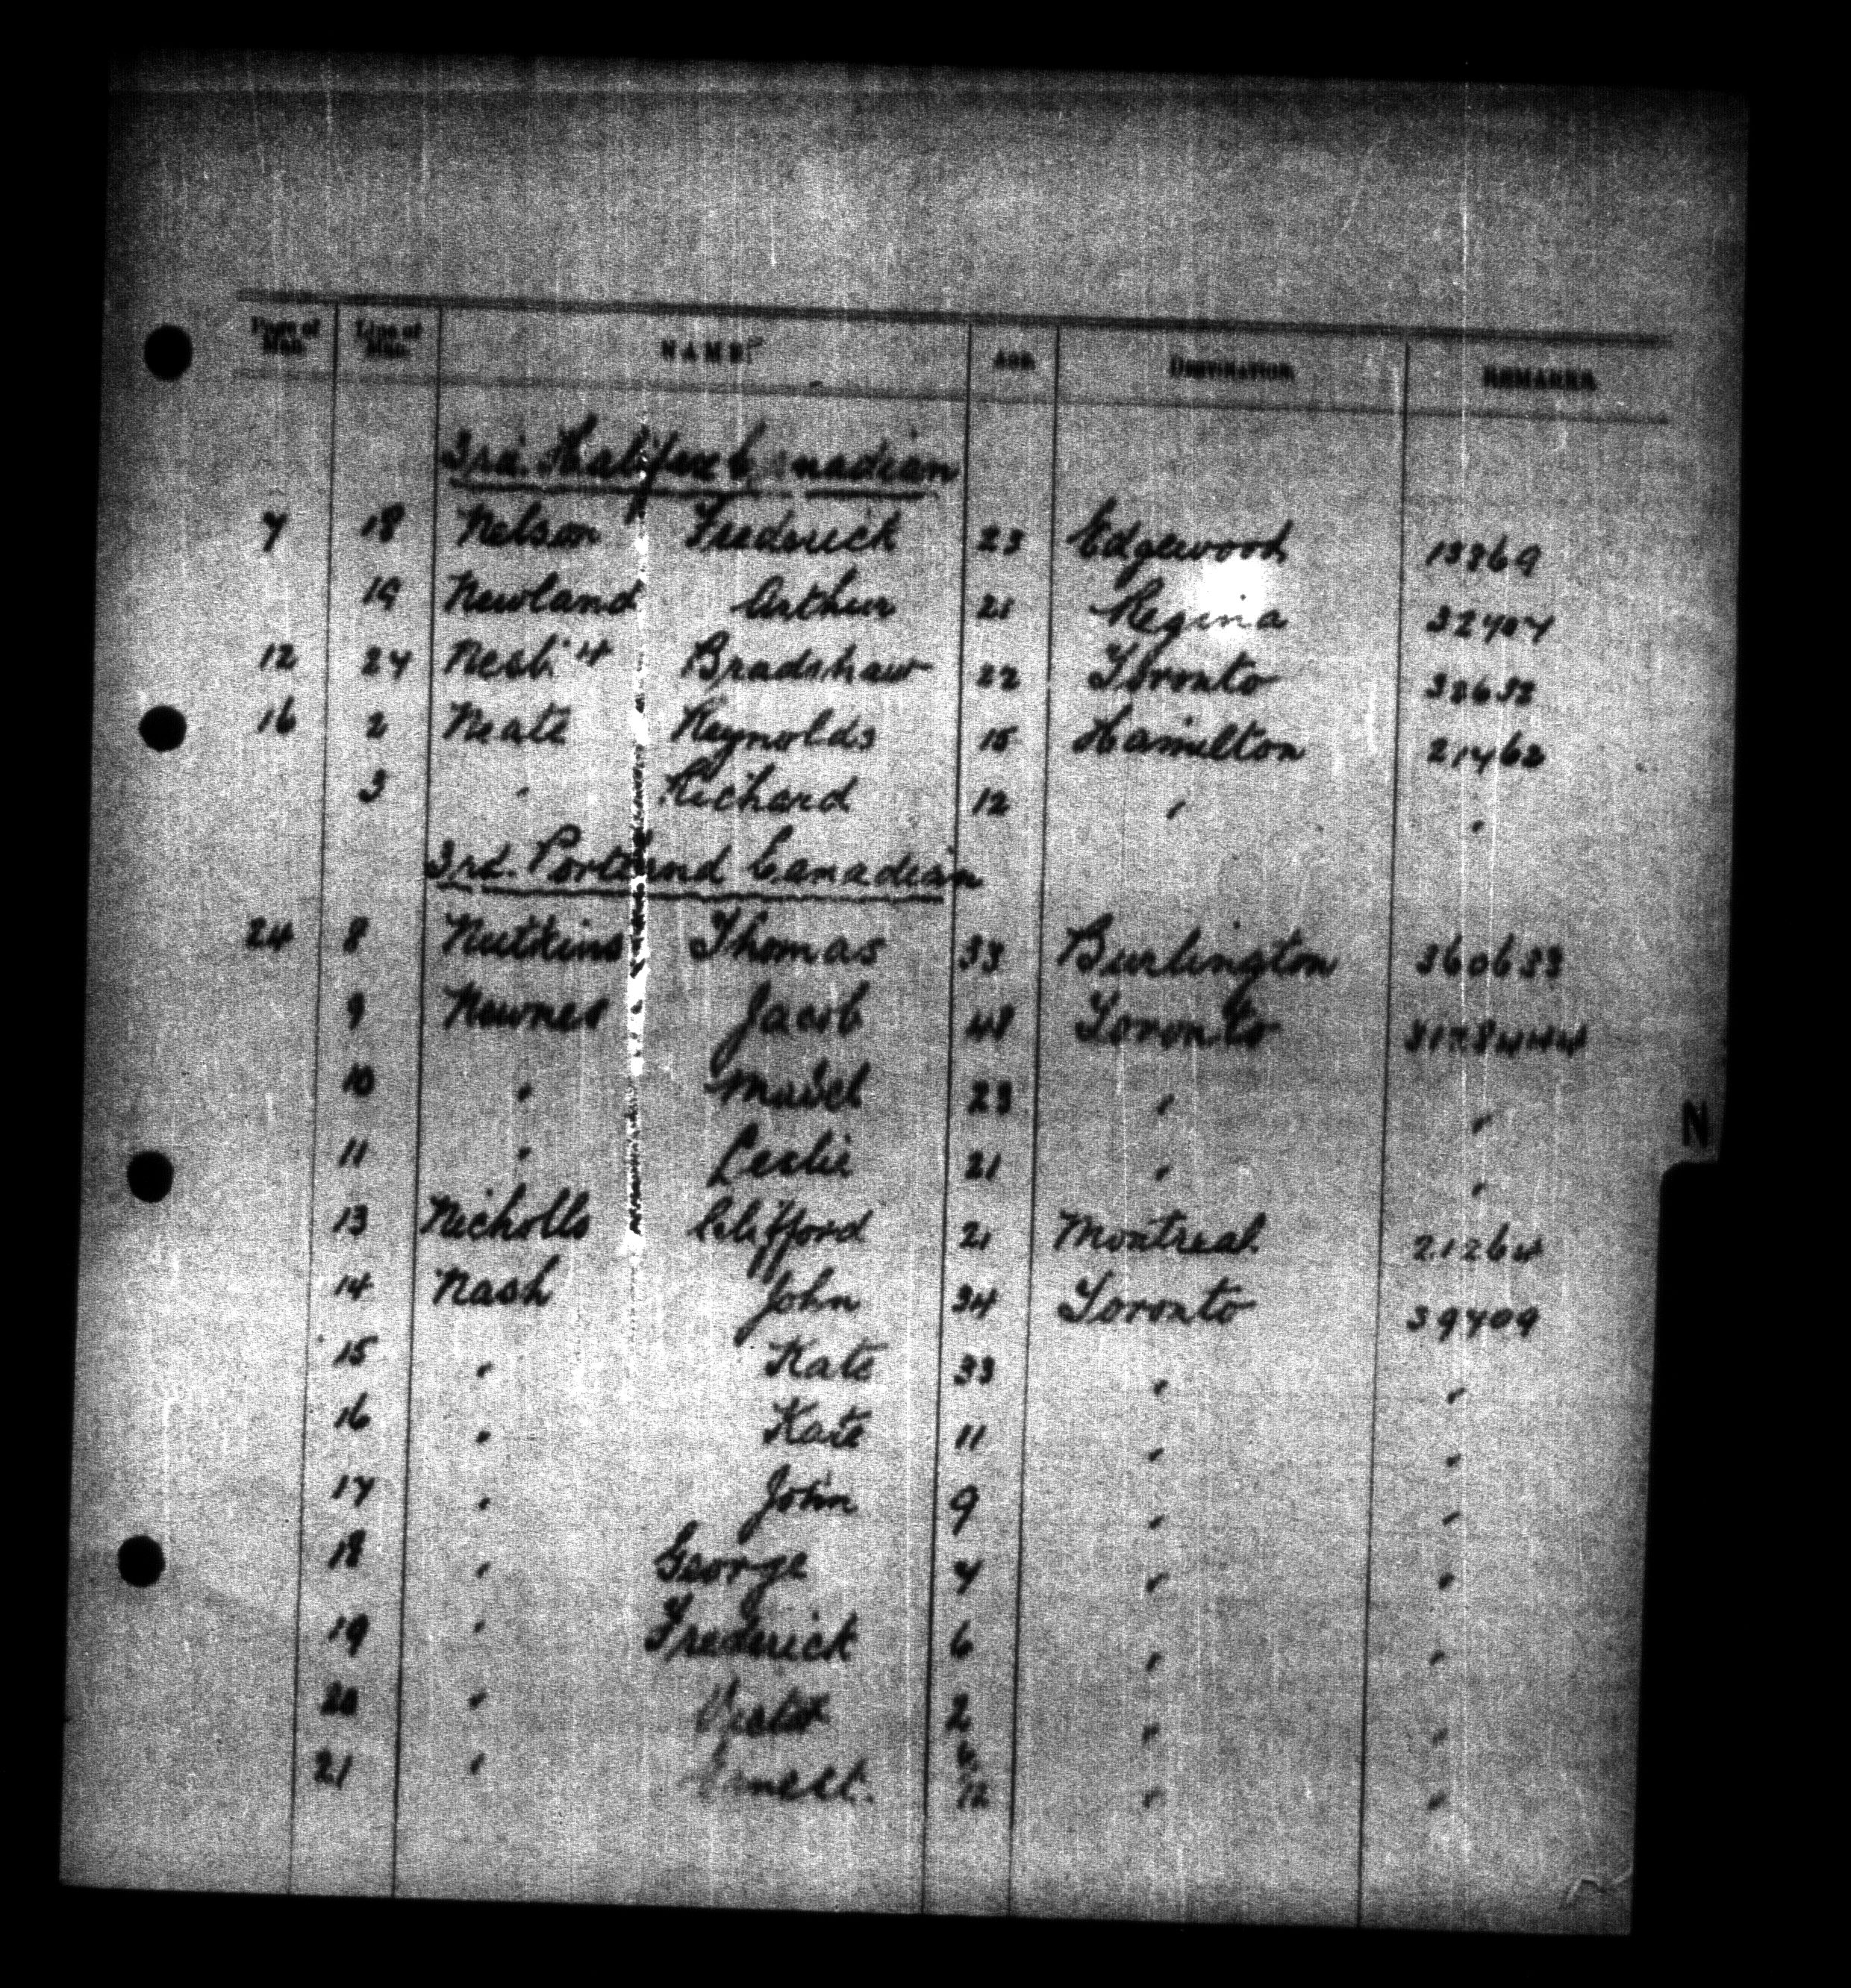 Page of Man. Line of Man. NAME AGE DESTINATION REMARKS
3rd. Halifax Canadian
7 18 Nelson Frederick 23 Edgewood 13869
19 Newland Arthur 21 Regina 32707
12 27 Bradshaw 22 Toronto
16 2 Neate Reynolds 15 Hamilton 21762
3 " Richard 12 " "
3rd. Portland Canadian
24 8 Nutkins Thomas 33 Burlington 360633
9 Newnes Jacob 48 Toronto
10 " Mabel 23 " "
11 " Leslie 21 " "
13 Nicholls Clifford 21 Montreal 21264
14 Nash John 34 Toronto 39709
15 " Kate 33 " "
16 " Kate 11 " "
17 " John 9 " "
18 " George 7 " "
19 " Frederick 6 " "
20 " Victor 2 " "
21 " Ernest. 6/12 " "
N